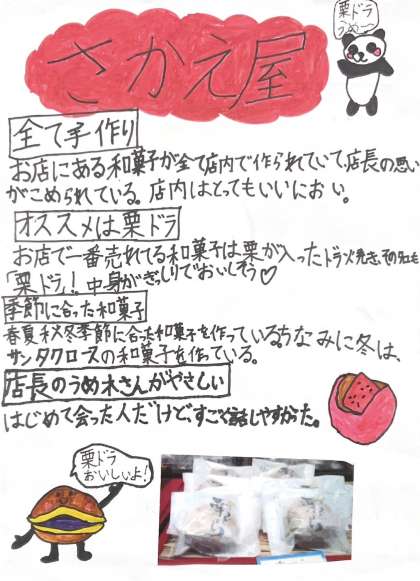 さかえ屋
栗ドラ
うめ〜
全て手作り
お店にある和菓子が全て店内で作られていて、店長の思い
がこめられている。店内はとてもいいにおい。
オススメは栗ドラ
お店で一番売れてる和菓子は栗が入ったドラ焼き、その名も
「栗ドラ」!中身がぎっしりでおいしそう♡
季節に合った和菓子
春夏秋冬季節に合った和菓子を作っているちなみに冬は、
サンタクロースの和菓子を作っている。
店長のうめ木さんがやさしい
はじめて会った人だけど、すごく話しやすかった。
栗ドラ
おいしいよ!